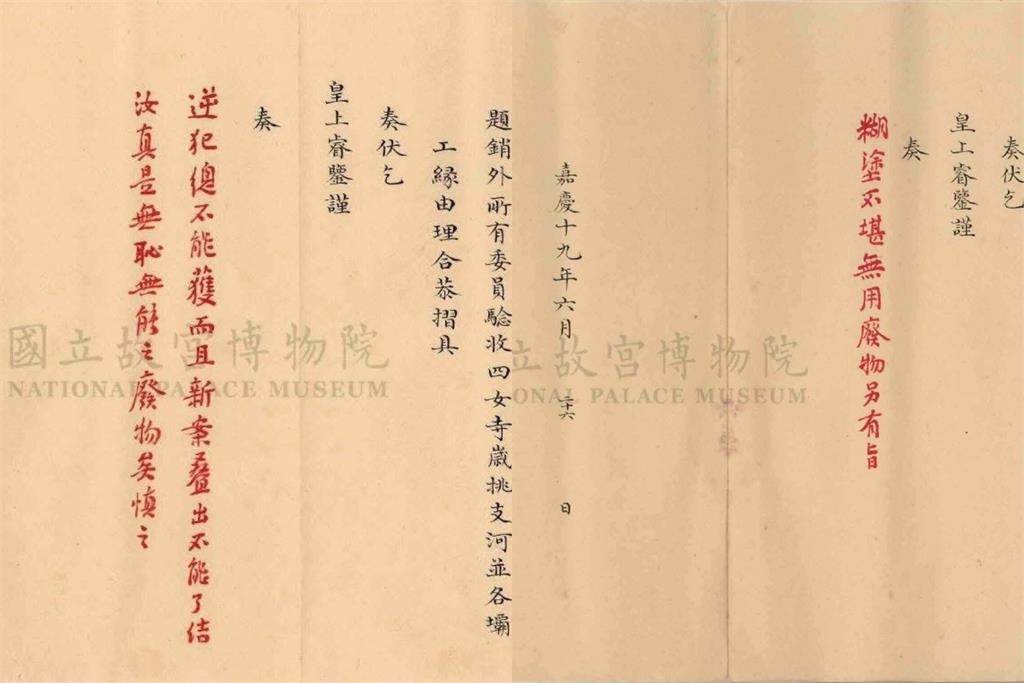 奏伏乞
皇上睿鑒謹
奏
糊塗不堪無用廢物另有旨
嘉慶十九年六月 二十六 日
題銷外所有委員驗收四女寺歲挑支河並各壩
工緣由理合恭摺具
奏伏乞
皇上睿鑒謹
奏
逆犯總不能獲而且新案疊出不能了結
汝真是無恥無能之廢物矣慎之
國立故宮博物院
NATIONAL PALACE MUSEUM
立故宮博物院
ONAL PALACE MUSEUM